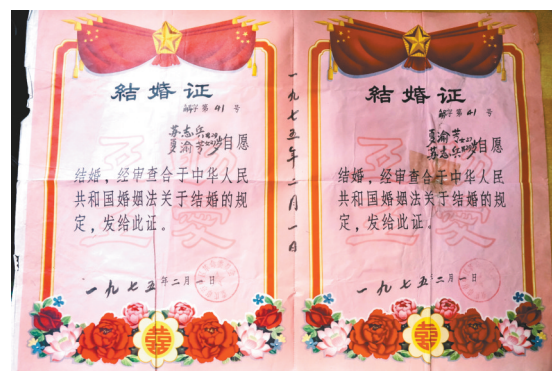 結婚证
字第41号
苏志兵
夏渝芳
自愿
结婚，经审查合于中华人民
共和国婚姻法关于结婚的规
定，发给此证。
一九七五年二月一日
囍
一九七五年二月一日
結婚证
字第41号
夏渝芳
苏志兵
自愿
结婚，经审查合于中华人民
共和国婚姻法关于结婚的规
定，发给此证。
一九七五年二月一日
囍